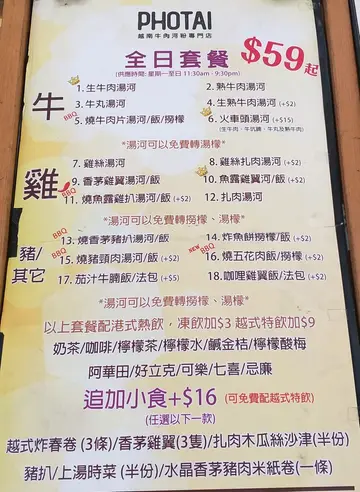 PHOTAI
越南牛肉河粉專門店
全日套餐 $59起
(供應時間: 星期一至日 11:30am - 9:30pm)
牛
1. 生牛肉湯河 2. 熟牛肉湯河
3. 牛丸湯河 4. 生熟牛肉湯河 (+$2)
BBQ 5. 燒牛肉片湯河/飯/撈檬 6. 火車頭湯河 (+$15)
(生牛肉、牛坑腩、牛丸及熟牛肉)
*湯河可以免費轉湯檬*
雞
7. 雞絲湯河 8. 雞絲扎肉湯河 (+$2)
9. 香茅雞翼湯河/飯 10. 魚露雞翼湯河/飯 (+$2)
BBQ 11. 燒魚露雞扒湯河/飯 (+$2) 12. 扎肉湯河
*湯河可以免費轉撈檬、湯檬*
豬/其它
BBQ 13. 燒香茅豬扒湯河/飯 14. 炸魚餅撈檬/飯 (+$2)
BBQ 15. 燒豬頸肉湯河/飯 (+$2) NEW BBQ 16. 燒五花肉飯/撈檬 (+$2)
17. 茄汁牛腩飯/法包 (+$5) 18. 咖哩雞翼飯/法包 (+$2)
*湯河可以免費轉撈檬、湯檬*
以上套餐配港式熱飲，凍飲加$3 越式特飲加$9
奶茶/咖啡/檸檬茶/檸檬水/鹹金桔/檸檬酸梅
阿華田/好立克/可樂/七喜/忌廉
追加小食+$16 (可免費配越式特飲)
(任選以下一款)
越式炸春卷 (3條)/香茅雞翼(3隻)/扎肉木瓜絲沙津(半份)
豬扒/上湯時菜 (半份)/水晶香茅豬肉米紙卷(一條)